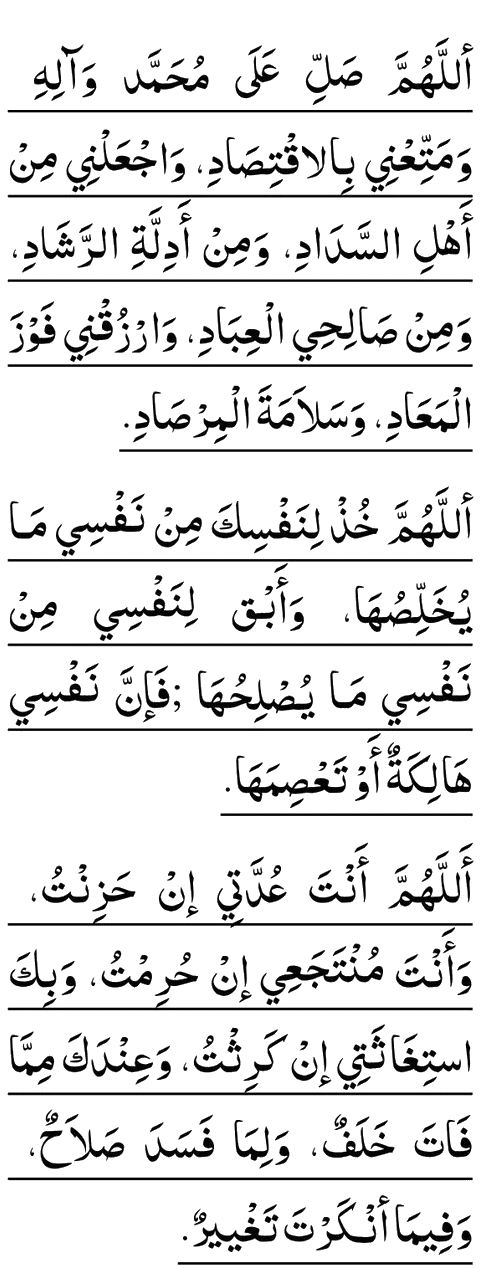 أللَّهُمَّ صَلِّ عَلَى مُحَمَّد وَآلِهِ
وَمَتِّعْنِي بِالاقْتِصَادِ، وَاجْعَلْنِي مِنْ
أَهْلِ السَّدَادِ، وَمِنْ أَدِلَّةِ الرَّشَادِ،
وَمِنْ صَالِحِي الْعِبَادِ، وَارْزُقْنِي فَوْزَ
الْمَعَادِ، وَسَلاَمَةَ الْمِرْصَادِ.
أللَّهُمَّ خُذْ لِنَفْسِكَ مِنْ نَفْسِي مَا
يُخَلِّصُهَا، وَأَبْق لِنَفْسِي مِنْ
نَفْسِي مَا يُصْلِحُهَا ;فَإنَّ نَفْسِي
هَالِكَةٌ أَوْ تَعْصِمَهَا.
أَللَّهُمَّ أَنْتَ عُدَّتِي إنْ حَزِنْتُ،
وَأَنْتَ مُنْتَجَعِي إنْ حُرِمْتُ، وَبِكَ
استِغَاثَتِي إنْ كَرِثْتُ، وَعِنْدَكَ مِمَّا
فَاتَ خَلَفٌ، وَلِمَا فَسَدَ صَلاَحٌ،
وَفِيمَا أنْكَرْتَ تَغْييرٌ.